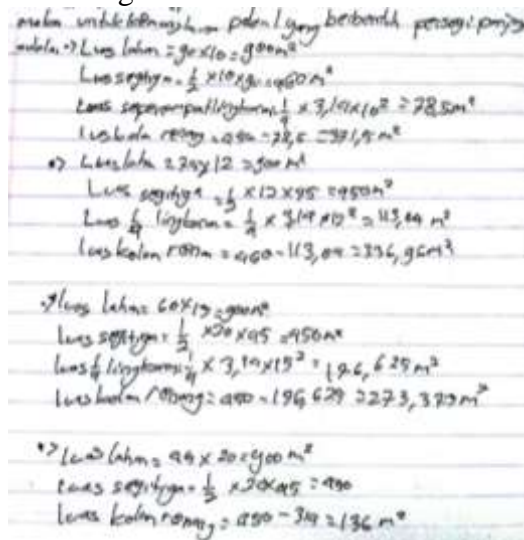 maka untuk kolam renang yang berbentuk persegi panjang
adalah => Luas lahan = 90 x 10 = 900 m²
Luas segitiga = 1/2 x 10 x 90 = 450 m²
Luas seperempat lingkaran = 1/4 x 3,14 x 10² = 78,5 m²
Luas kolam renang = 450 - 78,5 = 371,5 m²
=> Luas lahan = 75 x 12 = 900 m²
Luas segitiga = 1/2 x 12 x 75 = 450 m²
Luas 1/4 lingkaran = 1/4 x 3,14 x 12² = 113,04 m²
Luas kolam renang = 450 - 113,04 = 336,96 m²
=> Luas lahan = 60 x 15 = 900 m²
Luas segitiga = 1/2 x 45 = 450 m²
Luas 1/4 lingkaran = 1/4 x 3,14 x 15² = 176,625 m²
Luas kolam renang = 450 - 176,625 = 273,375 m²
=> Luas lahan = 45 x 20 = 900 m²
Luas segitiga = 1/2 x 20 x 45 = 450
Luas kolam renang = 450 - 314 = 136 m²